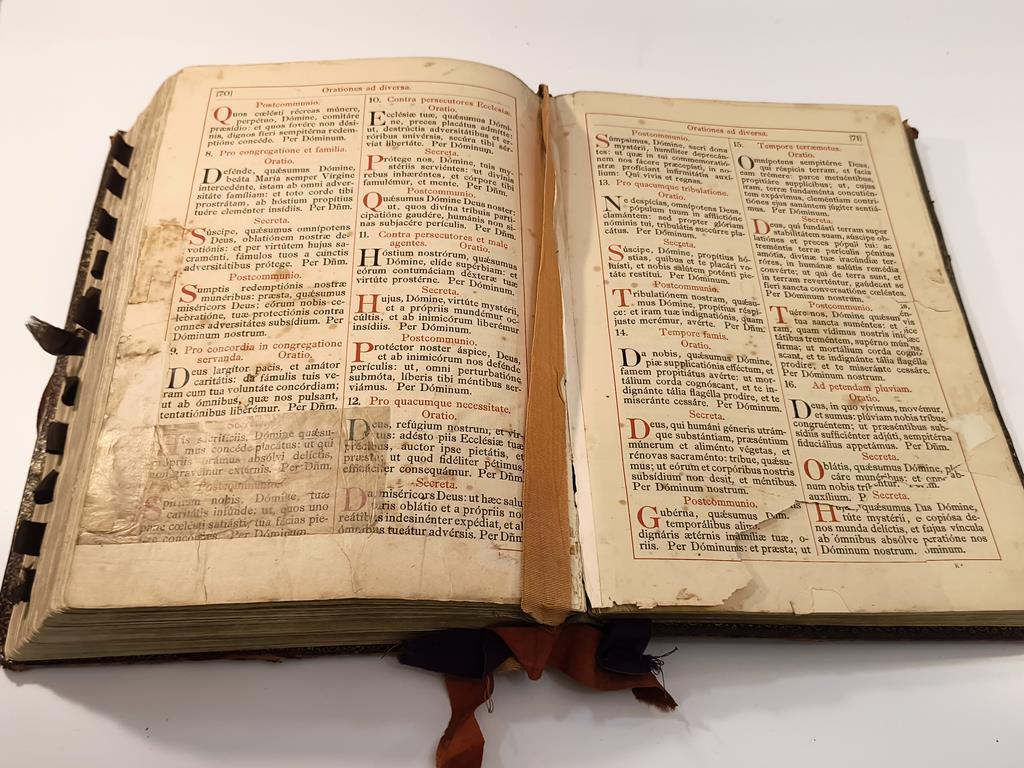 [70]
Orationes ad diversa.
Postcommunio.
Quos cœlésti récreas múnere,
perpétuo, Dómine, comitáre
præsídio: et quos fovére non dési-
nis, dignos fieri sempitérna redem-
ptióne concéde. Per Dóminum.
8. Pro congregatione et familia.
Oratio.
Defénde, quǽsumus, Dómine,
beáta María semper Vírgine
intercedénte, istam ab omni adver-
sitáte famíliam: et toto corde tibi
prostrátam, ab hóstium propítius
tuére cleménter insídiis. Per Dñm.
Secreta.
Súscipe, quǽsumus, omnípotens
Deus, oblatiónem nostræ de-
votiónis: et per virtútem hujus sa-
craménti, fámulos tuos a cunctis
adversitátibus prótege. Per Dñm.
Postcommunio.
Sumptis redemptiónis nostræ
munéribus: præsta, quǽsumus
miséricors Deus: eórum nobis ce-
lebratióne, tuæ protectiónis contra
omnes adversitátes subsídium. Per
Dóminum nostrum.
9. Pro concordia in congregatione
servanda. Oratio.
Deus largítor pacis, et amátor
caritátis: da fámulis tuis ve-
ram cum tua voluntáte concórdiam;
ut ab ómnibus, quæ nos pulsant,
tentatiónibus liberémur. Per Dñm.
his sacrifíciis, Dómine, quǽsu-
mus concéde placátus: ut qui
própriis orámus absólvi delíctis,
non gravémur extérnis. Per Dñm.
Postcommunio.
Spíritum nobis, Dómine, tuæ
caritátis infúnde: ut, quos uno
pane cœlésti satiásti, tua fácias pie-
concórdes. Per Dóminum
10. Contra persecutores Ecclesiæ.
Oratio.
Ecclésiæ tuæ, quǽsumus, Dómi-
ne, preces placátus admítte:
ut, destrúctis adversitátibus et er-
róribus univérsis, secúra tibi sér-
viat libertáte. Per Dóminum.
Secreta.
Prótege nos, Dómine, tuis my-
stériis serviéntes: ut divínis
rebus inhæréntes, et córpore tibi
famulémur, et mente. Per Dñm.
Postcommunio.
Quǽsumus Dómine Deus noster:
ut, quos divína tríbuis parti-
cipatióne gaudére, humánis non si-
nas subjacére perículis. Per Dñm.
11. Contra persecutores et male
agentes. Oratio.
Hóstium nostrórum, quǽsumus
Dómine, elíde supérbiam: et
eórum contumáciam déxteræ tuæ
virtúte prostérne. Per Dóminum.
Secreta.
Hujus, Dómine, virtúte mystérii,
et a própriis mundémur oc-
cúltis, et ab inimicórum liberémur
insídiis. Per Dóminum.
Postcommunio.
Protéctor noster áspice, Deus,
et ab inimicórum nos defénde
perículis: ut, omni perturbatióne
submóta, líberis tibi méntibus ser-
viámus. Per Dóminum.
12. Pro quacumque necessitate.
Oratio.
Deus, refúgium nostrum, et vir-
tus: adésto piis Ecclésiæ tuæ
précibus, auctor ipse pietátis, et
præsta: ut quod fidéliter pétimus,
efficáciter consequámur. Per Dñm.
Secreta.
Da miséricors Deus: ut hæc salu-
táris oblátio et a própriis no
reátibus indesinénter expédiat, et ab
ómnibus tueátur advérsis. Per Dñm.
Orationes ad diversa.
[71]
Postcommunio.
Súmpsimus, Dómine, sacri dona
mystérii, humíliter deprecán-
tes: ut quæ in tui commemoratió-
nem nos fácere præcepísti, in no-
stræ profíciant infirmitátis auxí-
lium: Qui vivis et regnas.
13. Pro quacumque tribulatione.
Oratio.
Ne despícias, omnípotens Deus,
pópulum tuum in afflictióne
clamántem: sed propter glóriam
nóminis tui, tribulátis succúrre pla-
cátus. Per Dóminum.
Secreta.
Súscipe, Dómine, propítius hó-
stias, quibus et te placári vo-
luísti, et nobis salútem poténti pie-
táte restítui. Per Dóminum.
Postcommunio.
Tribulatiónem nostram, quǽsu-
mus Dómine, propítius réspi-
ce: et iram tuæ indignatiónis, quam
juste merémur, avérte. Per Dñm.
14. Tempore famis.
Oratio.
Da nobis, quǽsumus Dómine,
piæ supplicatiónis efféctum, et
famem propitiátus avérte: ut mor-
tálium corda cognóscant, et te in-
dignánte tália flagélla prodíre, et te
miseránte cessáre. Per Dóminum.
Secreta.
Deus, qui humáni géneris utrám-
que substántiam, præséntium
múnerum et aliménto végetas, et
rénovas sacraménto: tríbue, quǽsu-
mus; ut eórum et corpóribus nostris
subsídium non desit, et méntibus.
Per Dóminum nostrum.
Postcommunio.
Gubérna, quǽsumus, Dñm.
temporálibus
dignáris ætérnis
riis. Per Dóminum: et præsta; ut
15. Tempore terræmotus.
Oratio.
Omnípotens sempitérne Deus,
qui réspicis terram, et facis
eam trémere: parce metuéntibus,
propitiáre supplícibus; ut, cujus
iram, terræ fundaménta concutién-
tem expávimus, cleméntiam contri-
tiónes ejus sanántem júgiter sentiá-
mus. Per Dóminum.
Secreta.
Deus, qui fundásti terram super
stabilitátem suam, súscipe ob-
latiónes et preces pópuli tui: ac
treméntis terræ perículis pénitus
amótis, divínæ tuæ iracúndiæ ter-
róres, in humánæ salútis remédia
convérte; ut qui de terra sunt, et
in terram reverténtur, gáudeant se
fíeri sancta conversatióne cœléstes.
Per Dóminum nostrum.
Postcommunio.
Tuére nos, Dómine, quǽsumus
tua sancta suméntes: et
ram, quam vídimus nostris in
tátibus treméntem, supérno mún
firma; ut mortálium corda cogno
scant, et te indignánte tália flagélla
prodíre, et te miseránte cessáre.
Per Dóminum nostrum.
16. Ad petendam pluviam.
Oratio.
Deus, in quo vívimus, movémur,
et sumus: plúviam nobis tríbue
congruéntem; ut præséntibus sub-
sídiis sufficiénter adjúti, sempitérna
fiduciálius appetámus. Per Dñm.
Secreta.
Oblátis, quǽsumus Dómine,
cáre munéribus: et
num nobis
auxílium. P
Secreta.
H quǽsumus Dus Dómine,
túte mystérii, e copiósa de-
nos munda delíctis, et fujus víncula
ab ómnibus absólve peratióne nos
Dóminum nostrum. óminum.
K*